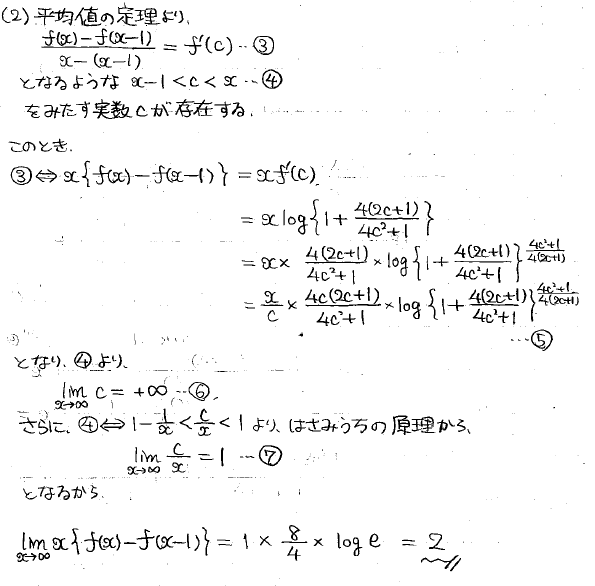 (2) 平均値の定理より、
\frac{f(x)-f(x-1)}{x-(x-1)} = f'(c) … ③
となるような x-1 < c < x … ④
をみたす実数 c が存在する。
このとき、
③ ⇔ x{f(x)-f(x-1)} = xf'(c)
= x log{1 + \frac{4(2c+1)}{4c²+1}}
= x × \frac{4(2c+1)}{4c²+1} × log{1 + \frac{4(2c+1)}{4c²+1}}^{\frac{4c²+1}{4(2c+1)}}
= \frac{x}{c} × \frac{4c(2c+1)}{4c²+1} × log{1 + \frac{4(2c+1)}{4c²+1}}^{\frac{4c²+1}{4(2c+1)}}
… ⑤
となり、④より、
\lim_{x→∞} c = +∞ … ⑥
さらに、④ ⇔ 1 - \frac{1}{x} < \frac{c}{x} < 1 より、はさみうちの原理から、
\lim_{x→∞} \frac{c}{x} = 1 … ⑦
となるから
\lim_{x→∞} x{f(x)-f(x-1)} = 1 × \frac{8}{4} × log e = 2